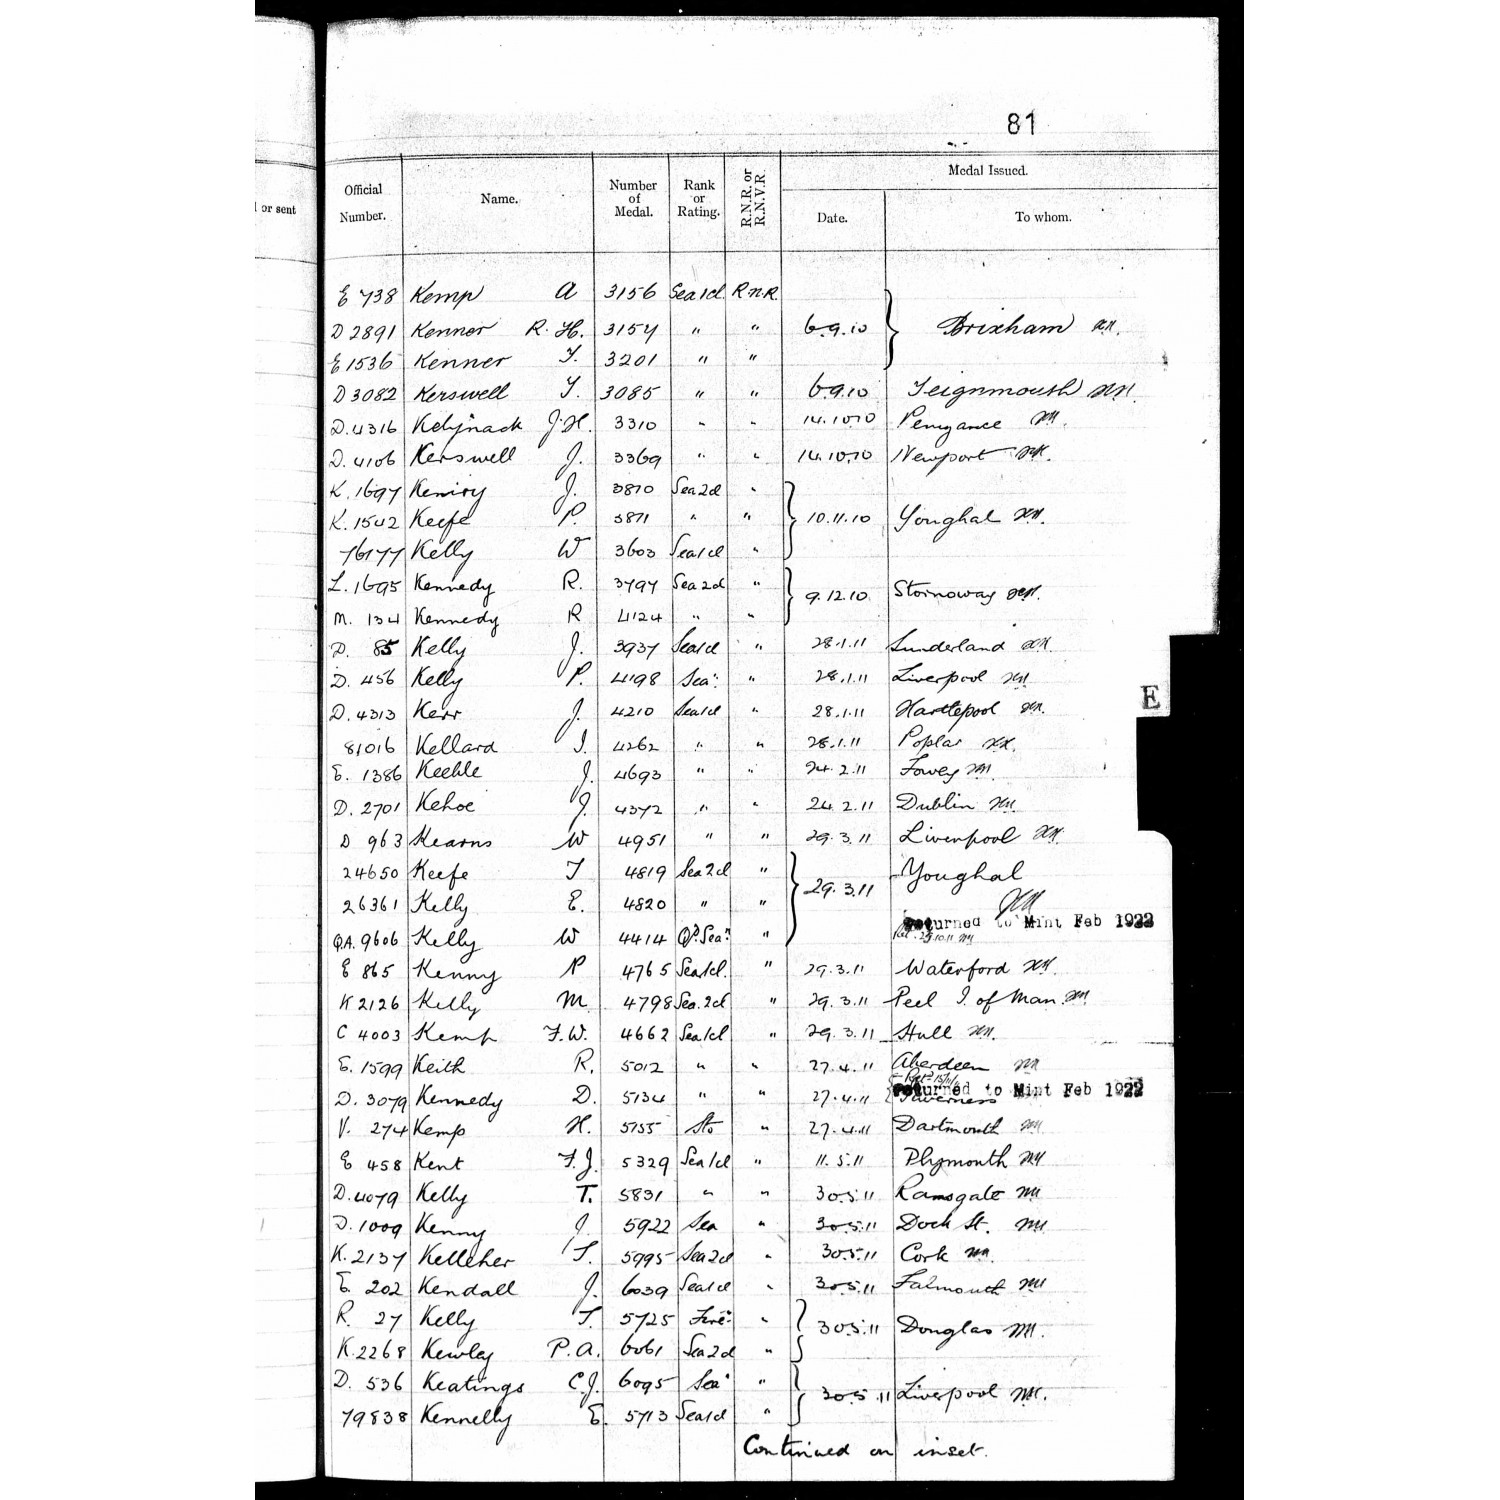 81
Official Number. Name. Number of Medal. Rank or Rating. R.N.R. or R.N.V.R Medal Issued.
Date. To whom.
or sent
E 738 Kemp A 3156 Sea 1cl R.N.R.
D 2891 Kenner R. H. 3154 " " 6.9.10 Brixham
E 1536 Kenner T. 3201 " "
D 3082 Kerswell T. 3085 " " 6.9.10 Teignmouth
D. 4316 Kelynack J.H. 3310 " " 14.10.10 Penzance
D. 4106 Kerswell J. 3369 " " 14.10.10 Newport
K. 1697 Keniry J. 3870 Sea 2cl "
K. 1542 Keefe P. 3871 " " 10.11.10 Youghal
76177 Kelly W 3603 Sea 1cl "
L. 1695 Kennedy R. 3797 Sea 2cl " 9.12.10 Stornoway
M. 134 Kennedy R 4124 " "
D. 85 Kelly J. 3937 Sea 1cl " 28.1.11 Sunderland
D. 456 Kelly P. 4198 Sea " 28.1.11 Liverpool
D. 4313 Kerr J. 4210 Sea 1cl " 28.1.11 Hartlepool
81016 Kellard I. 4262 " " 28.1.11 Poplar
E. 1386 Keehle J. 4693 " " 24.2.11 Fowey
D. 2701 Kehoe J. 4372 " " 24.2.11 Dublin
D 963 Kearns W 4951 " " 29.3.11 Liverpool
24650 Keefe T 4819 Sea 2cl " 29.3.11 Youghal
26361 Kelly E. 4820 " "
Returned to Mint Feb 1922
Q.A. 9606 Kelly W 4414 Qd. Sean "
E 865 Kenny P 4765 Sea 1cl. " 29.3.11 Waterford
K 2126 Kelly M 4798 Sea. 2cl " 29.3.11 Peel I. of Man.
C 4003 Kemp F.W. 4662 Sea 1cl " 29.3.11 Hull
E. 1599 Keith R. 5012 " " 27.4.11 Aberdeen
Returned to Mint Feb 1922
D. 3079 Kennedy D. 5134 " " 27.4.11 Inverness
V. 274 Kemp H. 5155 Sto " 27.4.11 Dartmouth
E 458 Kent F.J. 5329 Sea 1cl " 11.5.11 Plymouth
D. 4079 Kelly T. 5831 " " 30.5.11 Ramsgate
D. 1009 Kenny J. 5922 Sea " 30.5.11 Dock St.
K. 2137 Kelleher T. 5995 Sea 2cl " 30.5.11 Cork
E. 202 Kendall J. 6039 Sea 1cl " 30.5.11 Falmouth
R. 27 Kelly T. 5725 Fire " 30.5.11 Douglas
K. 2268 Kewley P. A. 6061 Sea 2cl "
D. 536 Keatings C.J. 6095 Sea " 30.5.11 Liverpool
79838 Kennelly E. 5713 Sea 1cl "
Continued on inset.
E